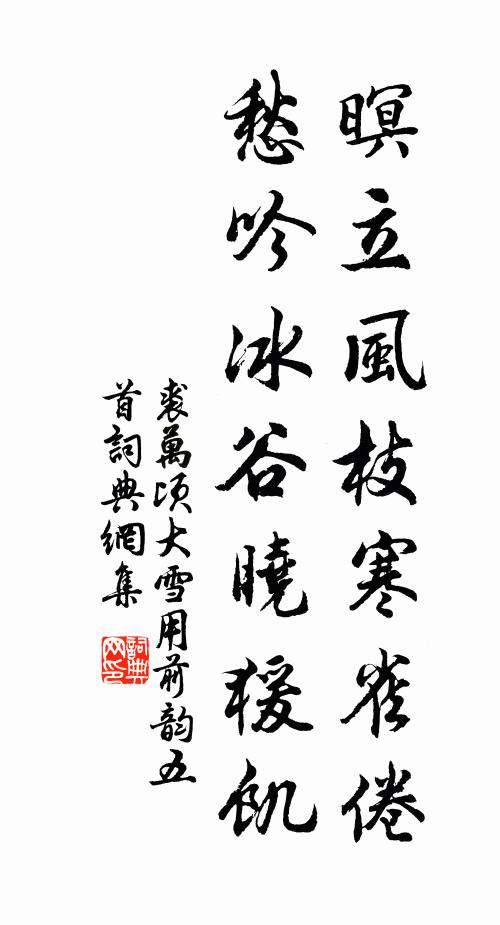 暝立風枝寒雀倦
愁吟冰谷曉猨飢
裘萬頃大雪用前韵五
首詞典網集
詞典
网印